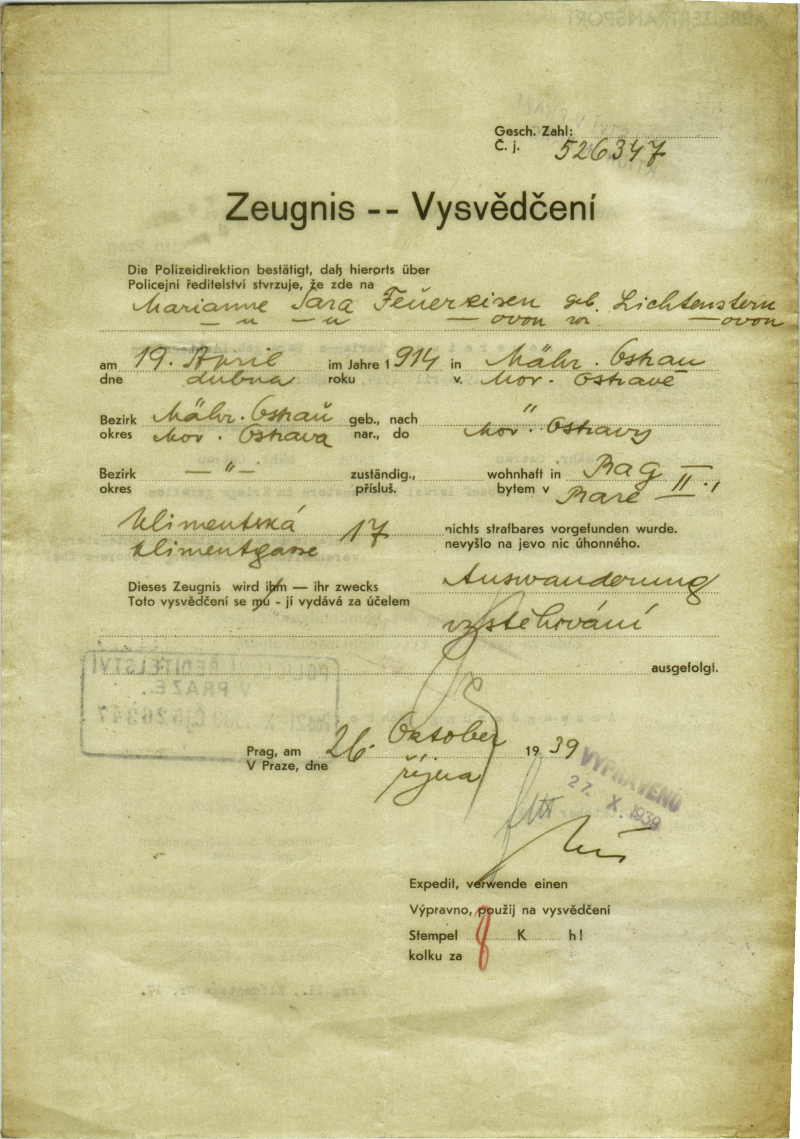 Gesch. Zahl:
Č. j. 526347
Zeugnis -- Vysvědčení
Die Polizeidirektion bestätigt, daß hierorts über
Policejní ředitelství stvrzuje, že zde na
Marianne Sara Feuereisen geb. Lichtenstern
— " — " — ovou roz. — ovou
am 19. April im Jahre 1914 in Mähr. Ostrau
dne dubna roku v. Mor. Ostravě
Bezirk Mähr. Ostrau geb., nach "
okres Mor. Ostrava nar., do Mor. Ostravy
Bezirk — " — zuständig., wohnhaft in Prag
okres přísluš. bytem v Praze II.,
Klimentská 17 nichts strafbares vorgefunden wurde.
Klimentgasse nevyšlo na jevo nic úhonného.
Dieses Zeugnis wird ihm — ihr zwecks Auswanderung
Toto vysvědčení se mu - jí vydává za účelem
vystěhování
ausgefolgt.
POLICEJNÍ ŘEDITELSTVÍ
V PRAZE.
526347
Prag, am 26. Oktober 1939
V Praze, dne října
VYPRAVENO
27. X. 1939
Expedit, verwende einen
Výpravno, použij na vysvědčení
Stempel 8 K h!
kolku za